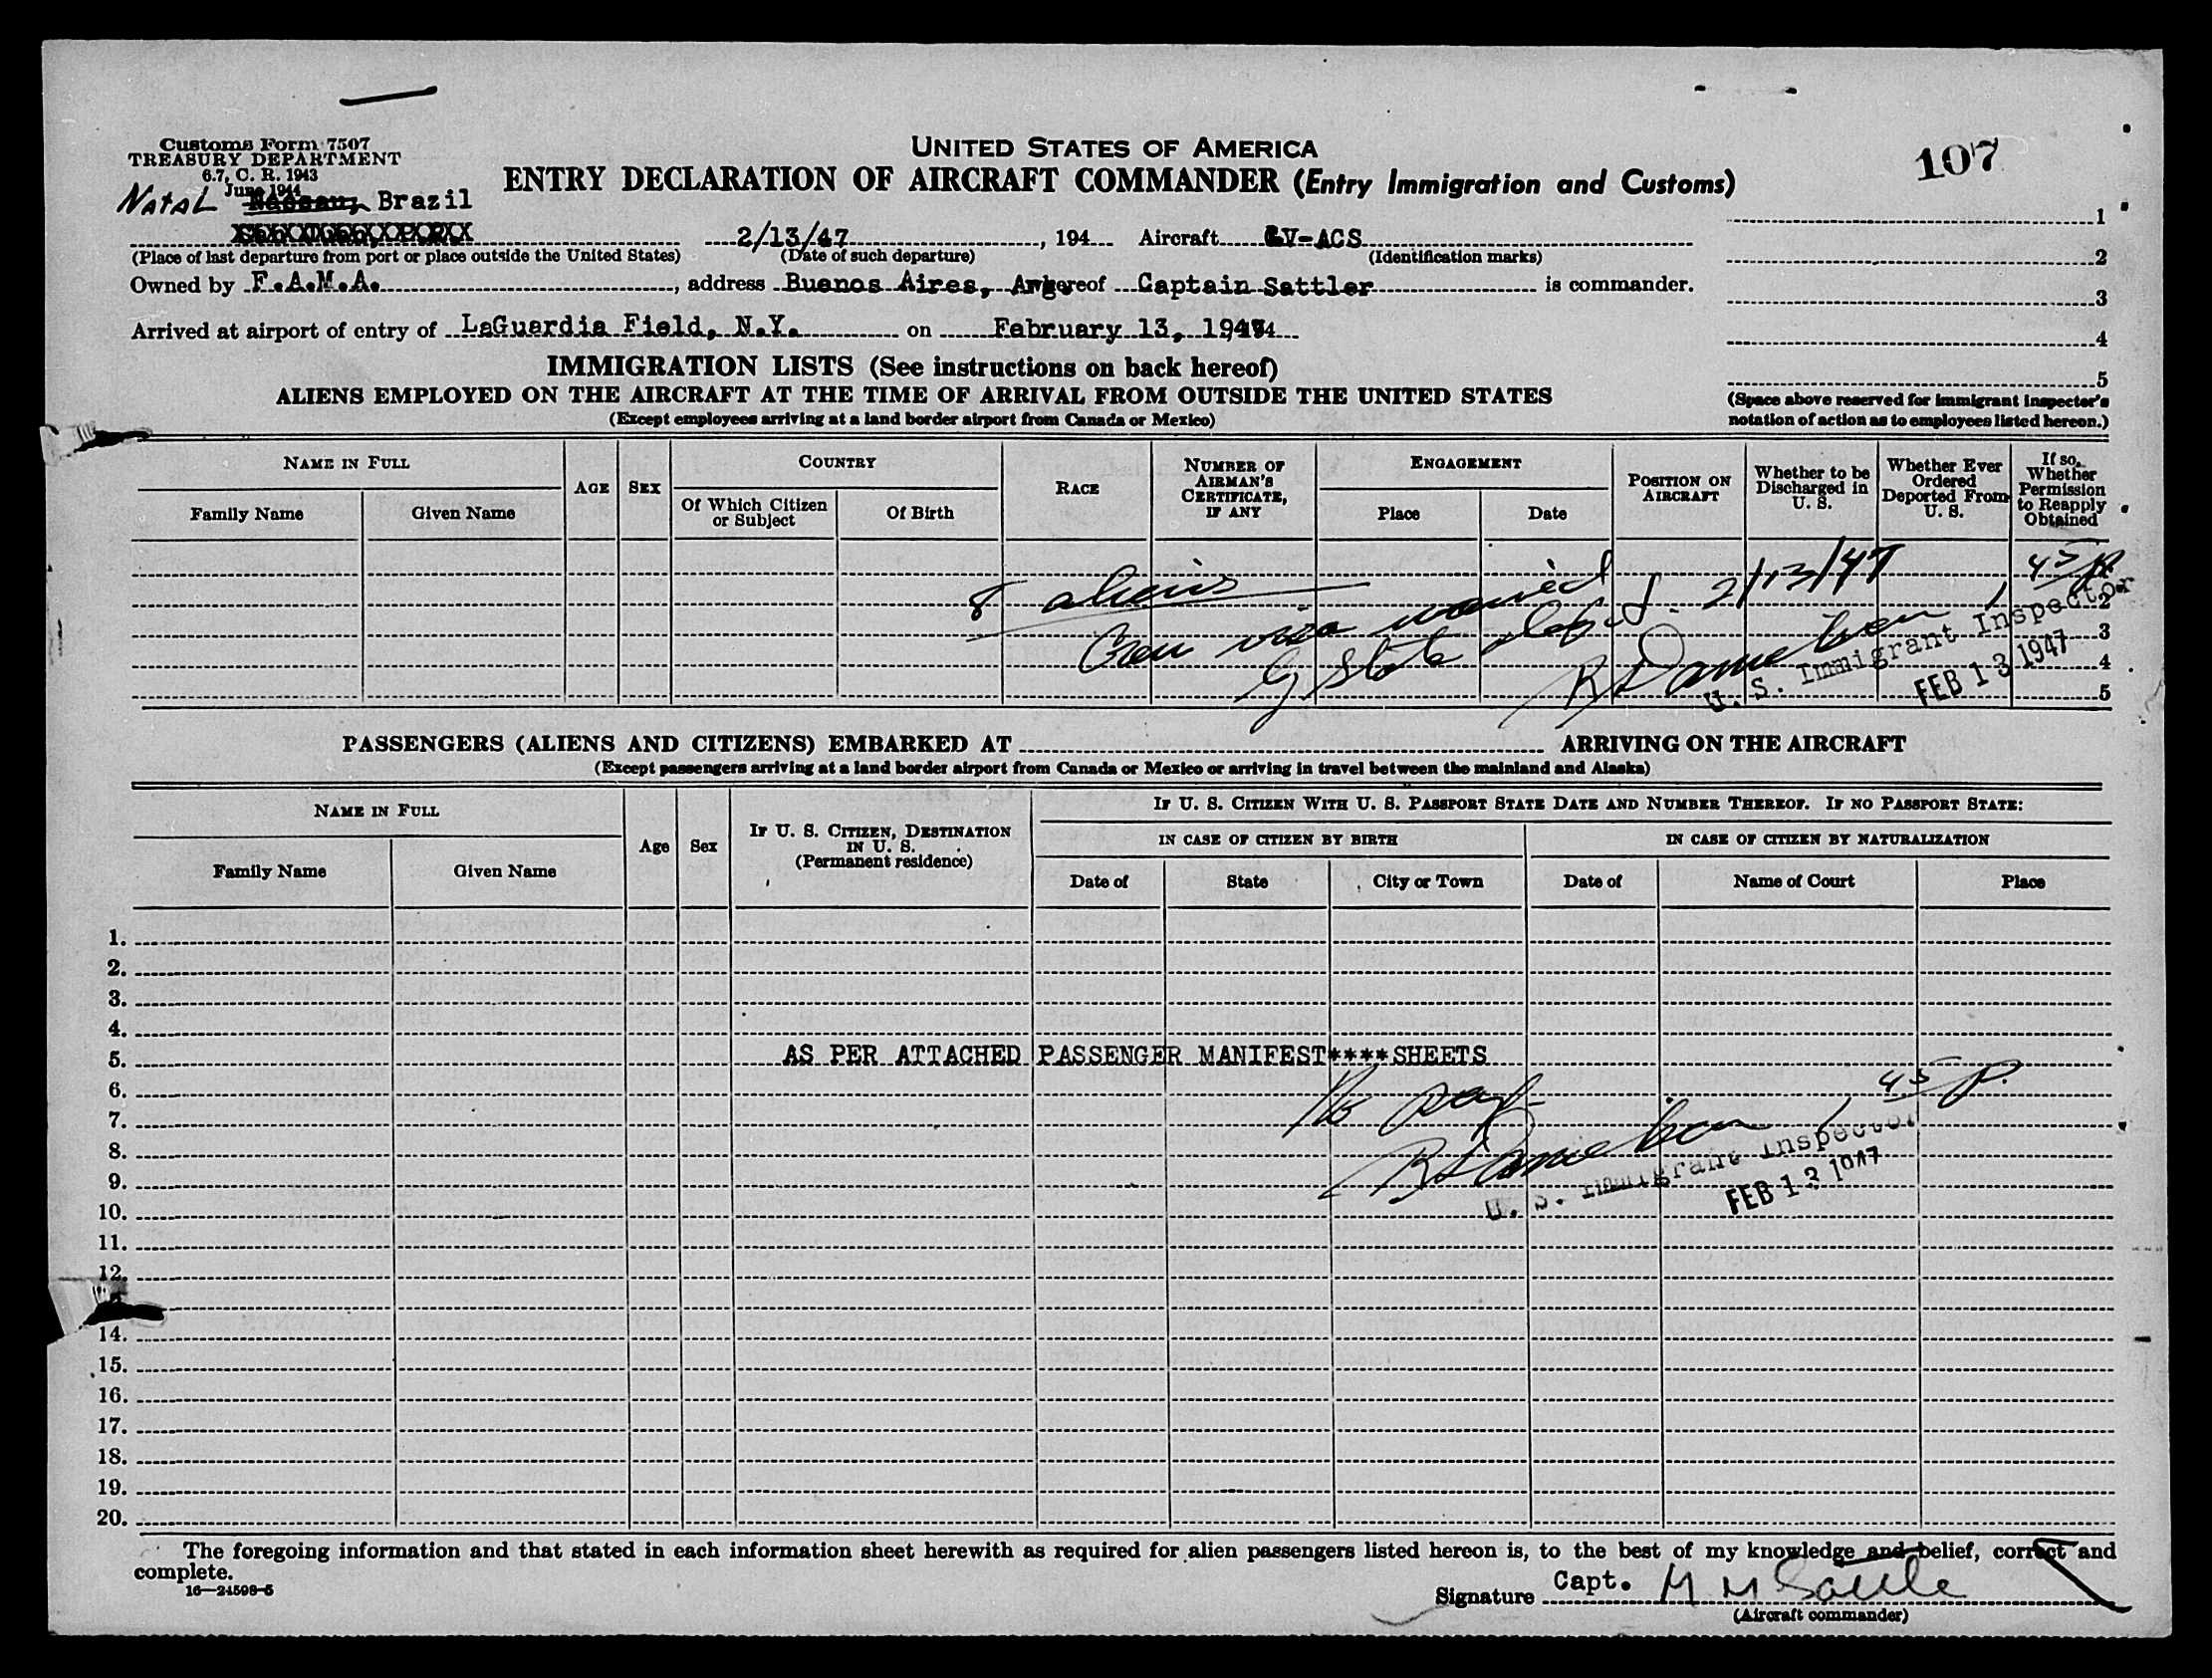 Customs Form 7507
TREASURY DEPARTMENT
6.7, C. R. 1943
June 1944
UNITED STATES OF AMERICA
ENTRY DECLARATION OF AIRCRAFT COMMANDER (Entry Immigration and Customs)
107
NATAL Nassau, Brazil
2/13/47, 194 Aircraft LV-ACS
(Place of last departure from port or place outside the United States) (Date of such departure) (Identification marks)
Owned by F.A.M.A., address Buenos Aires, Arg. whereof Captain Sattler is commander.
Arrived at airport of entry of LaGuardia Field, N.Y. on February 13, 1947
1
2
3
4
5
(Space above reserved for immigrant inspector's
notation of action as to employees listed hereon.)
IMMIGRATION LISTS (See instructions on back hereof)
ALIENS EMPLOYED ON THE AIRCRAFT AT THE TIME OF ARRIVAL FROM OUTSIDE THE UNITED STATES
(Except employees arriving at a land border airport from Canada or Mexico)
NAME IN FULL
Family Name
Given Name
AGE
SEX
COUNTRY
Of Which Citizen
or Subject
Of Birth
RACE
NUMBER OF
AIRMAN'S
CERTIFICATE,
IF ANY
ENGAGEMENT
Place
Date
POSITION ON
AIRCRAFT
Whether to be
Discharged in
U. S.
Whether Ever
Ordered
Deported From
U. S.
If so,
Whether
Permission
to Reapply
Obtained
8 aliens
Crew visa waived
by State Dept. 2/13/47
45 p.
U. S. Immigrant Inspector
FEB 13 1947
2
3
4
5
PASSENGERS (ALIENS AND CITIZENS) EMBARKED AT ARRIVING ON THE AIRCRAFT
(Except passengers arriving at a land border airport from Canada or Mexico or arriving in travel between the mainland and Alaska)
NAME IN FULL
Family Name
Given Name
Age
Sex
IF U. S. CITIZEN, DESTINATION
IN U. S.
(Permanent residence)
IF U. S. CITIZEN WITH U. S. PASSPORT STATE DATE AND NUMBER THEREOF. IF NO PASSPORT STATE:
IN CASE OF CITIZEN BY BIRTH
IN CASE OF CITIZEN BY NATURALIZATION
Date of
State
City or Town
Date of
Name of Court
Place
1.
2.
3.
4.
5. AS PER ATTACHED PASSENGER MANIFEST****SHEETS
6. 45 p.
7.
8.
9.
10.
U. S. Immigrant Inspector
FEB 13 1947
11.
12.
14.
15.
16.
17.
18.
19.
20.
The foregoing information and that stated in each information sheet herewith as required for alien passengers listed hereon is, to the best of my knowledge and belief, correct and
complete.
16—24598-5
Signature Capt. M M Sattler
(Aircraft commander)